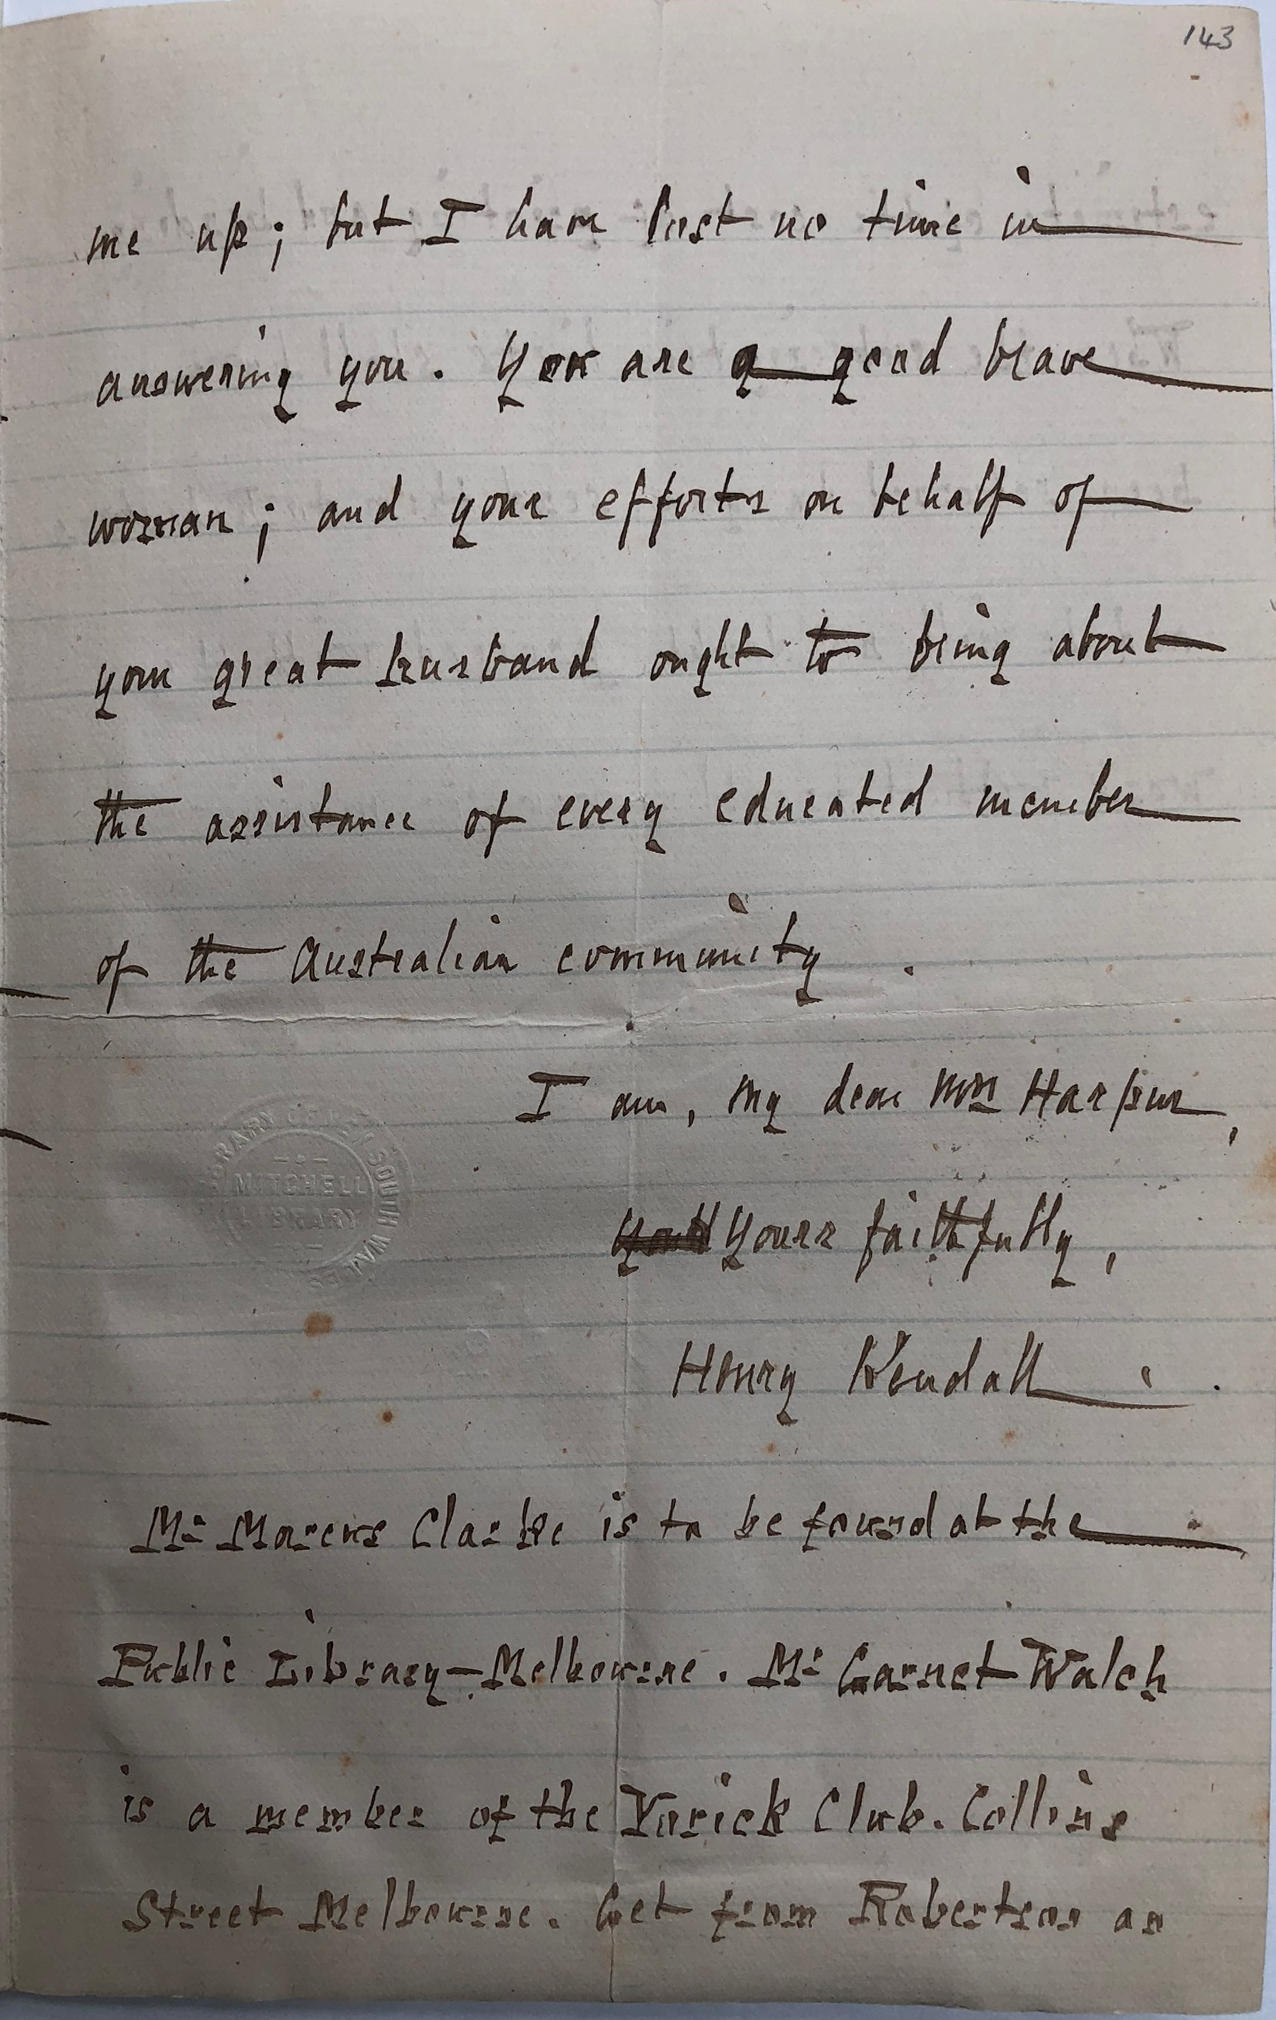 143
me up; but I have lost no time in
answering you. You are a good brave
woman; and your efforts on behalf of
your great husband ought to bring about
the assistance of every educated member
of the Australian community.
I am, my dear Mrs Harpur,
Yours faithfully,
Henry Kendall.
Mr Marcus Clarke is to be found at the
Public Library—Melbourne. Mr Garnet Walch
is a member of the Yorick Club. Collins
Street Melbourne. Get from Robertson an
LIBRARY OF NEW SOUTH WALES
MITCHELL
LIBRARY